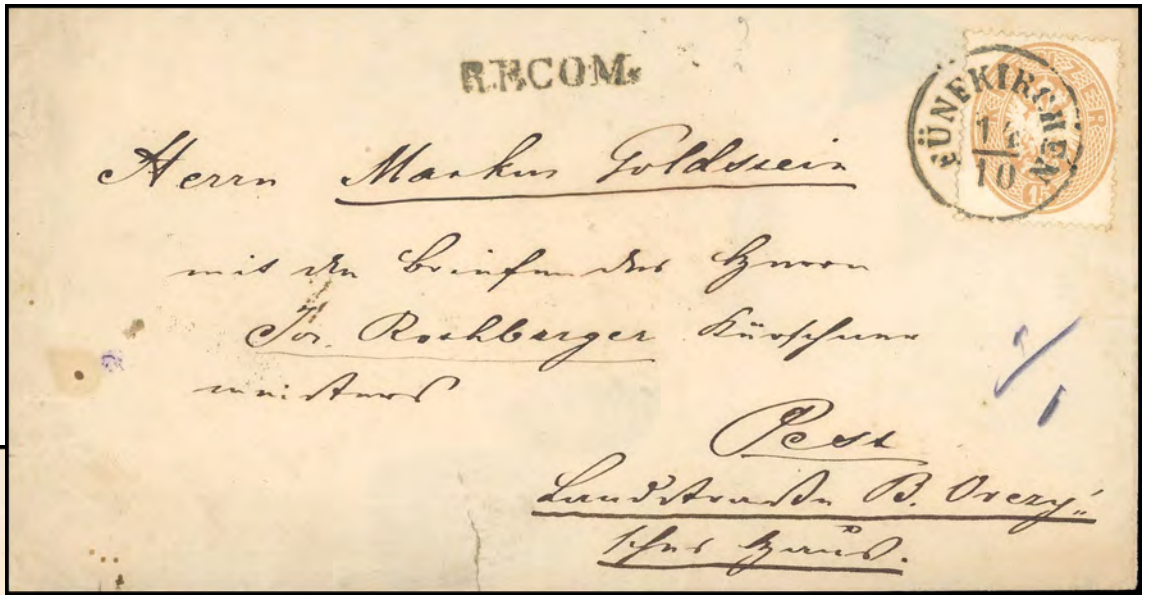 RECOM.
FÜNFKIRCHEN
14
10
KREUZER
15
Herrn Markus Goldstein
mit den Briefen des Herrn
Jos. Rothberger Kürschner
meisters
Pest
Landstraße B. Orczy'
sches Haus.